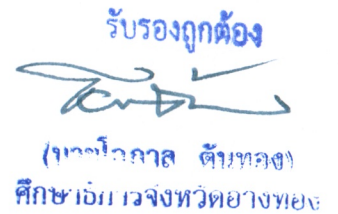 รับรองถูกต้อง
(นายโอภาส ต้นทอง)
ศึกษาธิการจังหวัดอ่างทอง